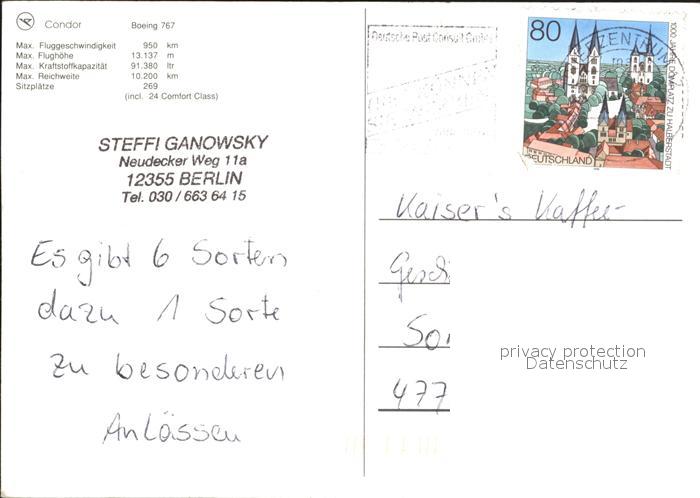 Condor Boeing 767
Max. Fluggeschwindigkeit 950 km
Max. Flughöhe 13.137 m
Max. Kraftstoffkapazität 91.380 ltr
Max. Reichweite 10.200 km
Sitzplätze 269
(incl. 24 Comfort Class)
STEFFI GANOWSKY
Neudecker Weg 11a
12355 BERLIN
Tel. 030 / 663 64 15
Es gibt 6 Sorten
dazu 1 Sorte
zu besonderen
Anlässen
Deutsche Post Consult GmbH
80
1000 JAHRE DOMPLATZ ZU HALBERSTADT
DEUTSCHLAND
ZENTRUM
Kaiser's Kaffee-
Gesch
So
477
privacy protection
Datenschutz